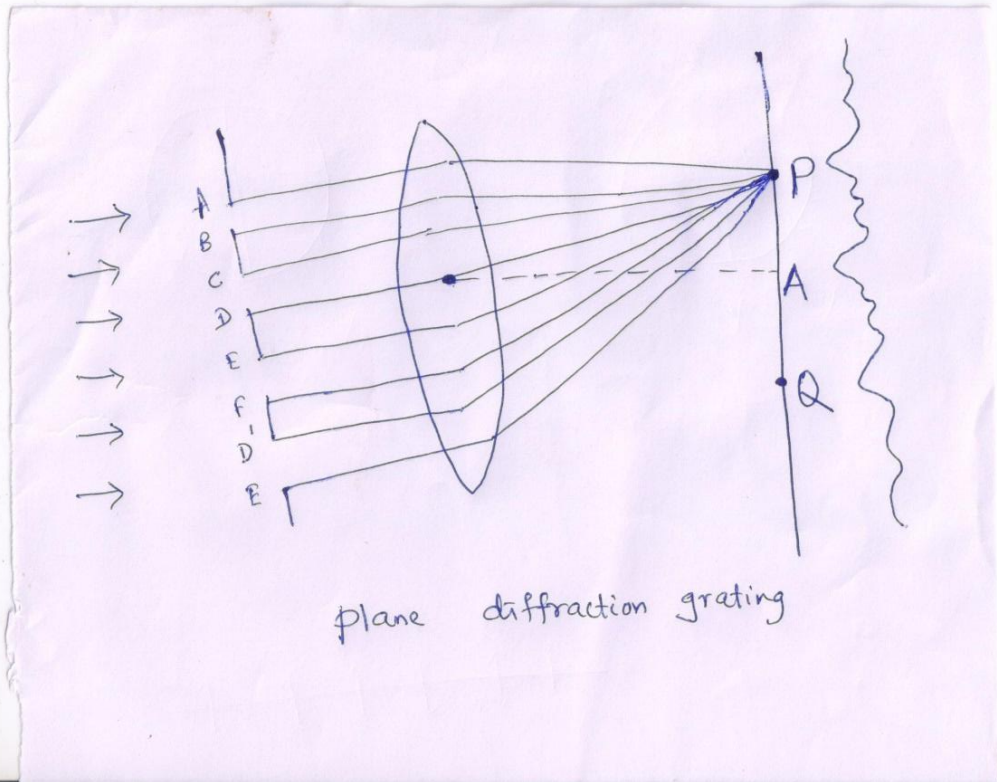 A
B
C
D
E
F
D
E
P
A
Q
plane diffraction grating